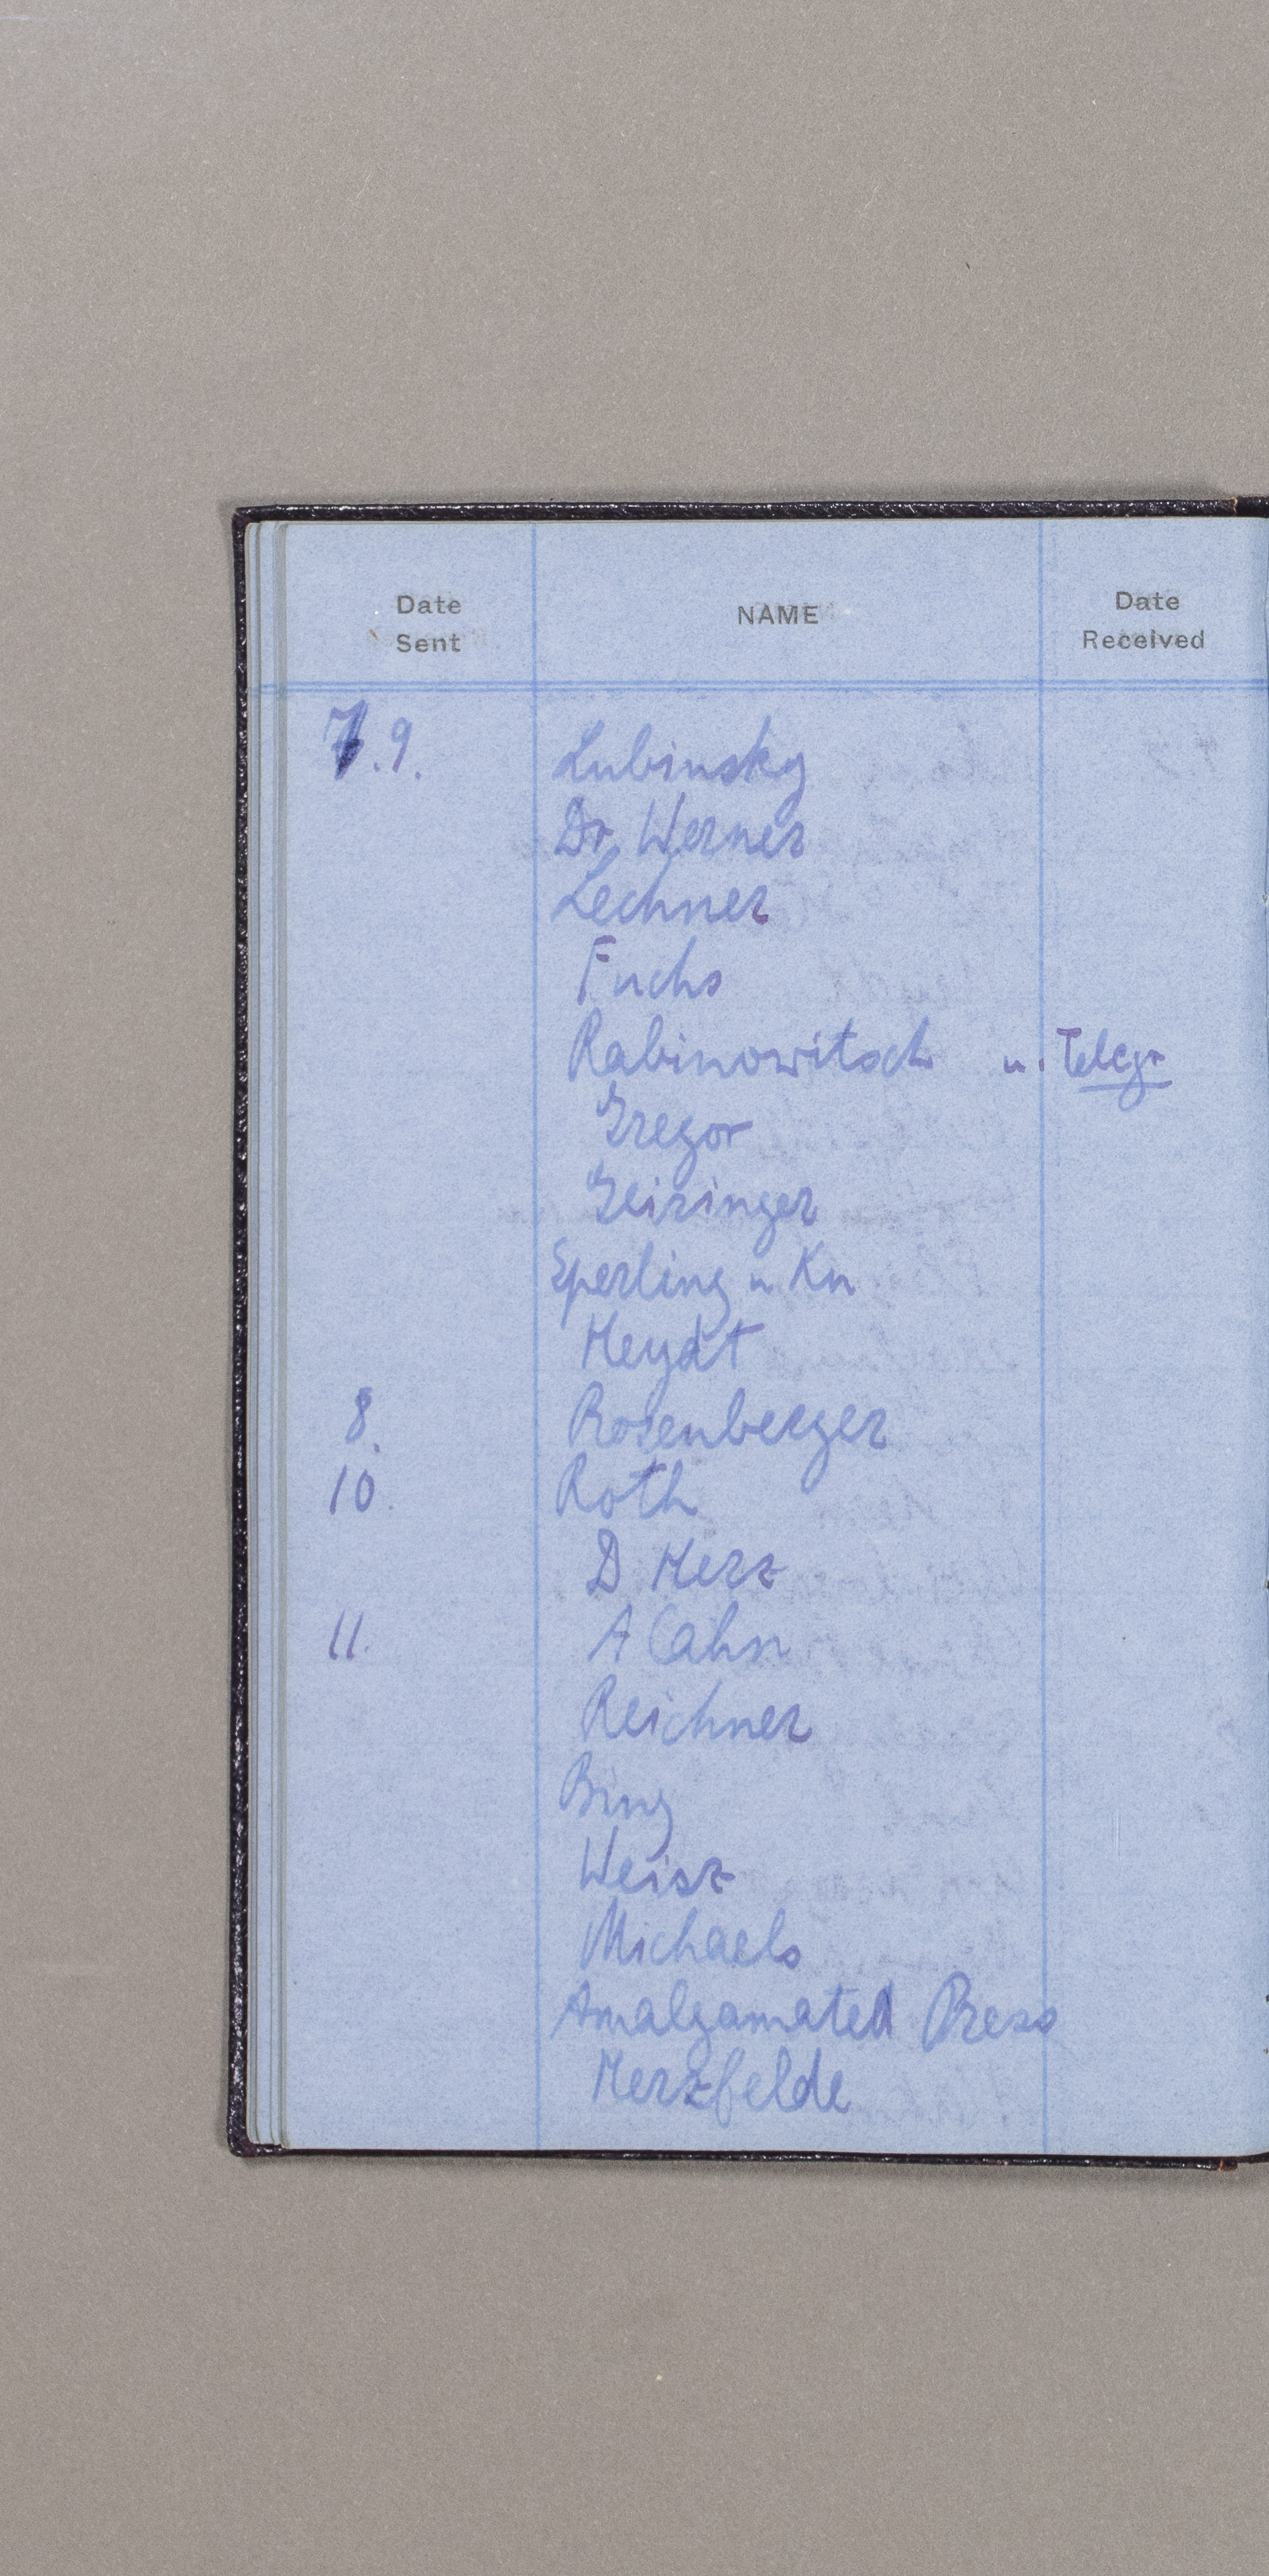 Date Sent NAME Date Received
7.9. Lubinsky
Dr. Werner
Lechner
Fuchs
Rabinowitsch u. Telegr
Gregor
Geiringer
Sperling u Kn
Heydt
8. Rosenberger
10. Roth
D Herz
11. A Cahn
Reichner
Bing
Weisz
Michaels
Amalgamated Press
Herzfelde